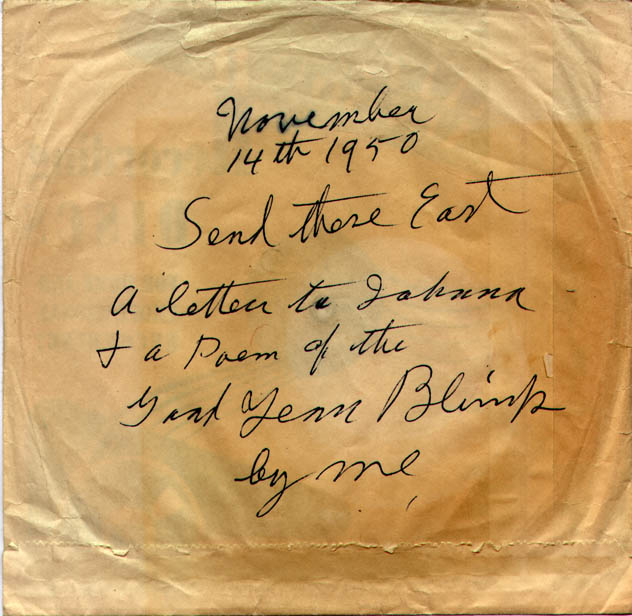 November
14th 1950
Send these East
A letter to Johanna
& a Poem of the
Good Year Blimp
by me